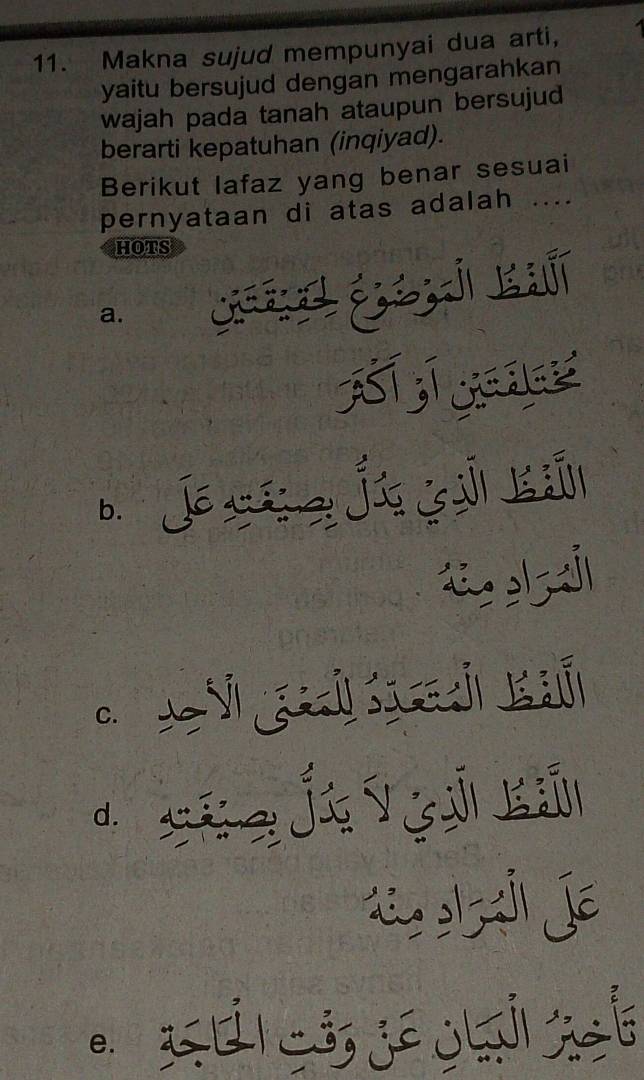 11. Makna sujud mempunyai dua arti,
yaitu bersujud dengan mengarahkan
wajah pada tanah ataupun bersujud
berarti kepatuhan (inqiyad).
Berikut lafaz yang benar sesuai
pernyataan di atas adalah ....
HOTS
a. اَللَّفْظُ الْمَوْضُوْعُ لِحَقِيْقَتَيْنِ
مُخْتَلِفَتَيْنِ اَوْ اَكْثَرَ
b. اللَّفْظُ الَّذِيْ يَدُلُّ بِصِيْغَتِهِ عَلَى
الْمُرَادِ مِنْهُ
c. اللَّفْظُ الْمُتَعَدِّدُ لِلْمَعْنَى الْأَحِدِ
d. اللَّفْظُ الَّذِيْ لَا يَدُلُّ بِصِيْغَتِهِ
عَلَى الْمُرَادِ مِنْهُ
e. تَأْخِيْرُ الْبَيَانِ عَنْ وَقْتِ الْحَاجَةِ